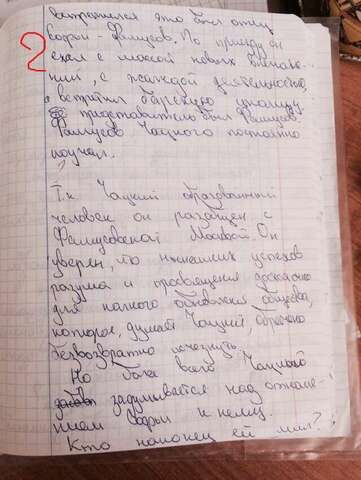 встретился это был отец
Софьи - Фамусов. По приезду он
ехал с массой новых
, с жаждой деятельности,
а встретил барскую
представитель был Фамусов.
Фамусов Чацкого постоянно
поучал.
2
Т.к Чацкий образованный
человек он разобщен с
Фамусовской Москвой. Он
уверен, что нынешних успехов
разума и просвещения достаточно
для полного обновления общества,
которое, думает Чацкий, обречено
безвозвратно исчезнуть.
Но более всего Чацкий
задумывается над отноше-
нием Софьи к нему.
Кто наконец ей мил?